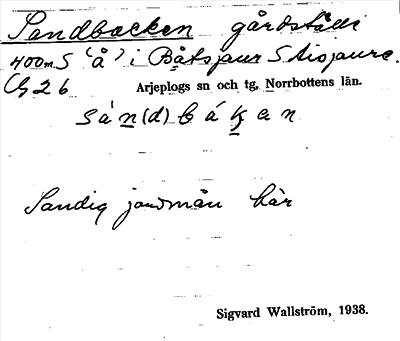 Sandbacken gårdställe
400 m S 'å' i Båtsjaur S
G 2 6 Arjeplogs sn och tg, Norrbottens län.
sán(d)bákan
Sandig jordmån här
Sigvard Wallström, 1938.